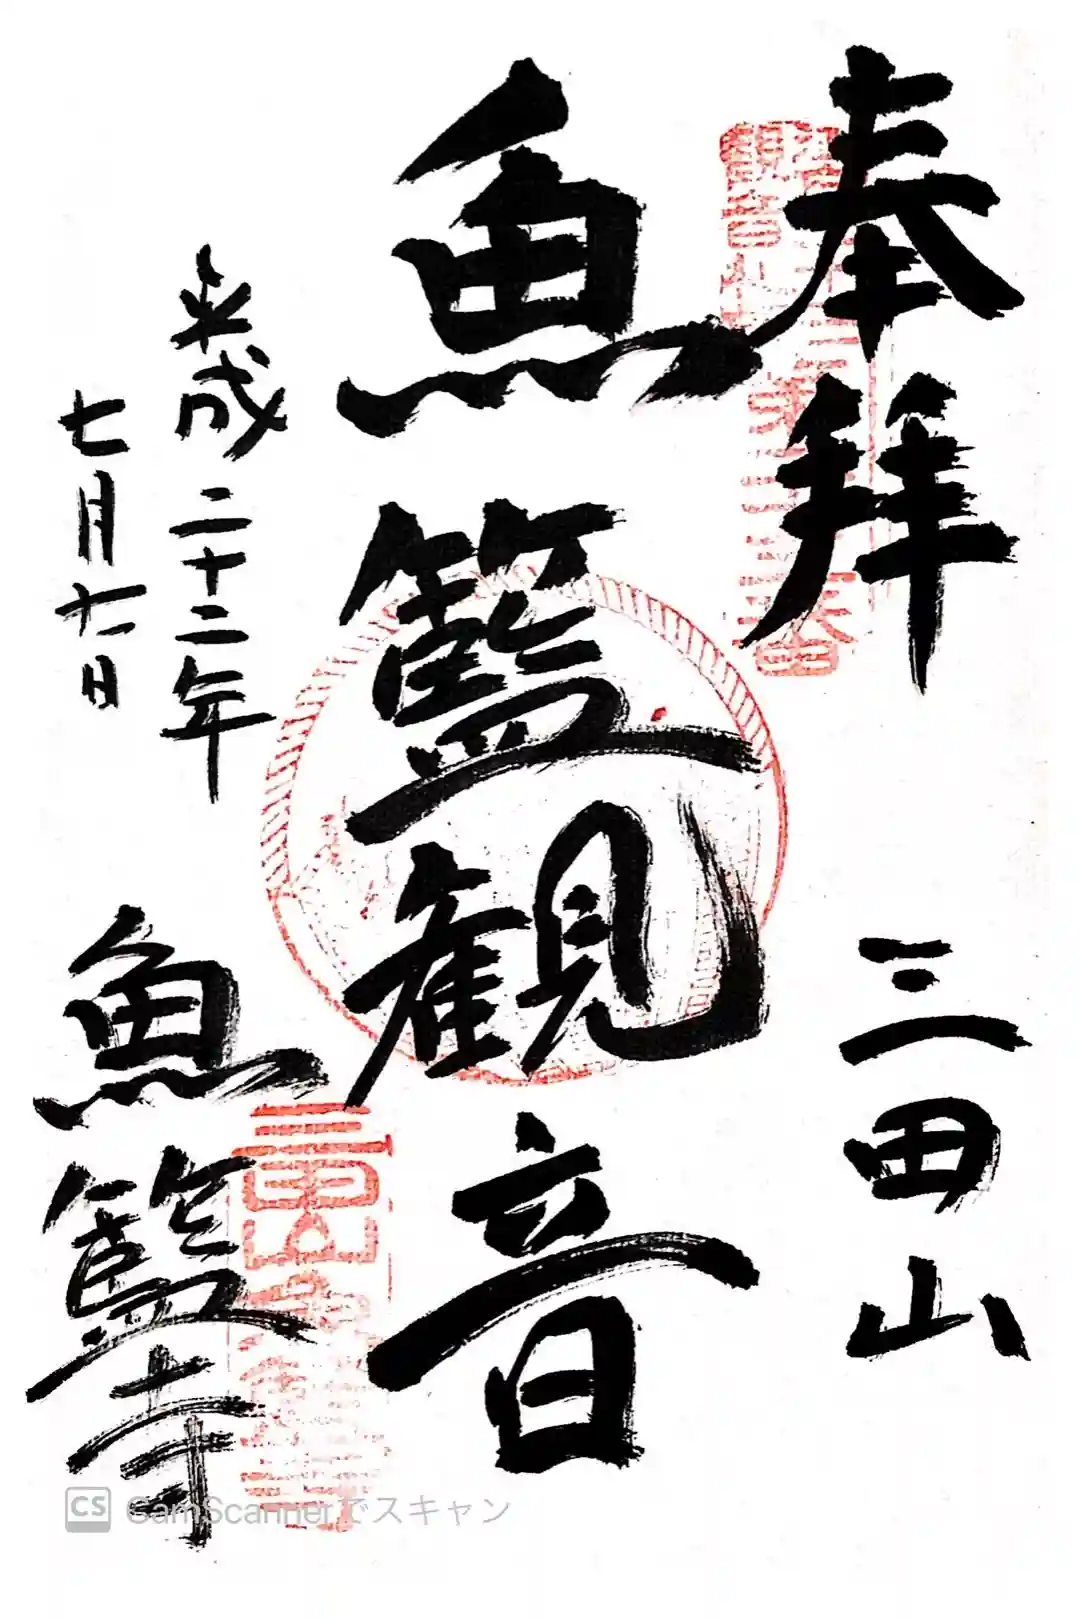 奉拝
三田山
魚籃観音
平成二十二年
七月六日
魚籃寺
三田山
CS CamScannerでスキャン